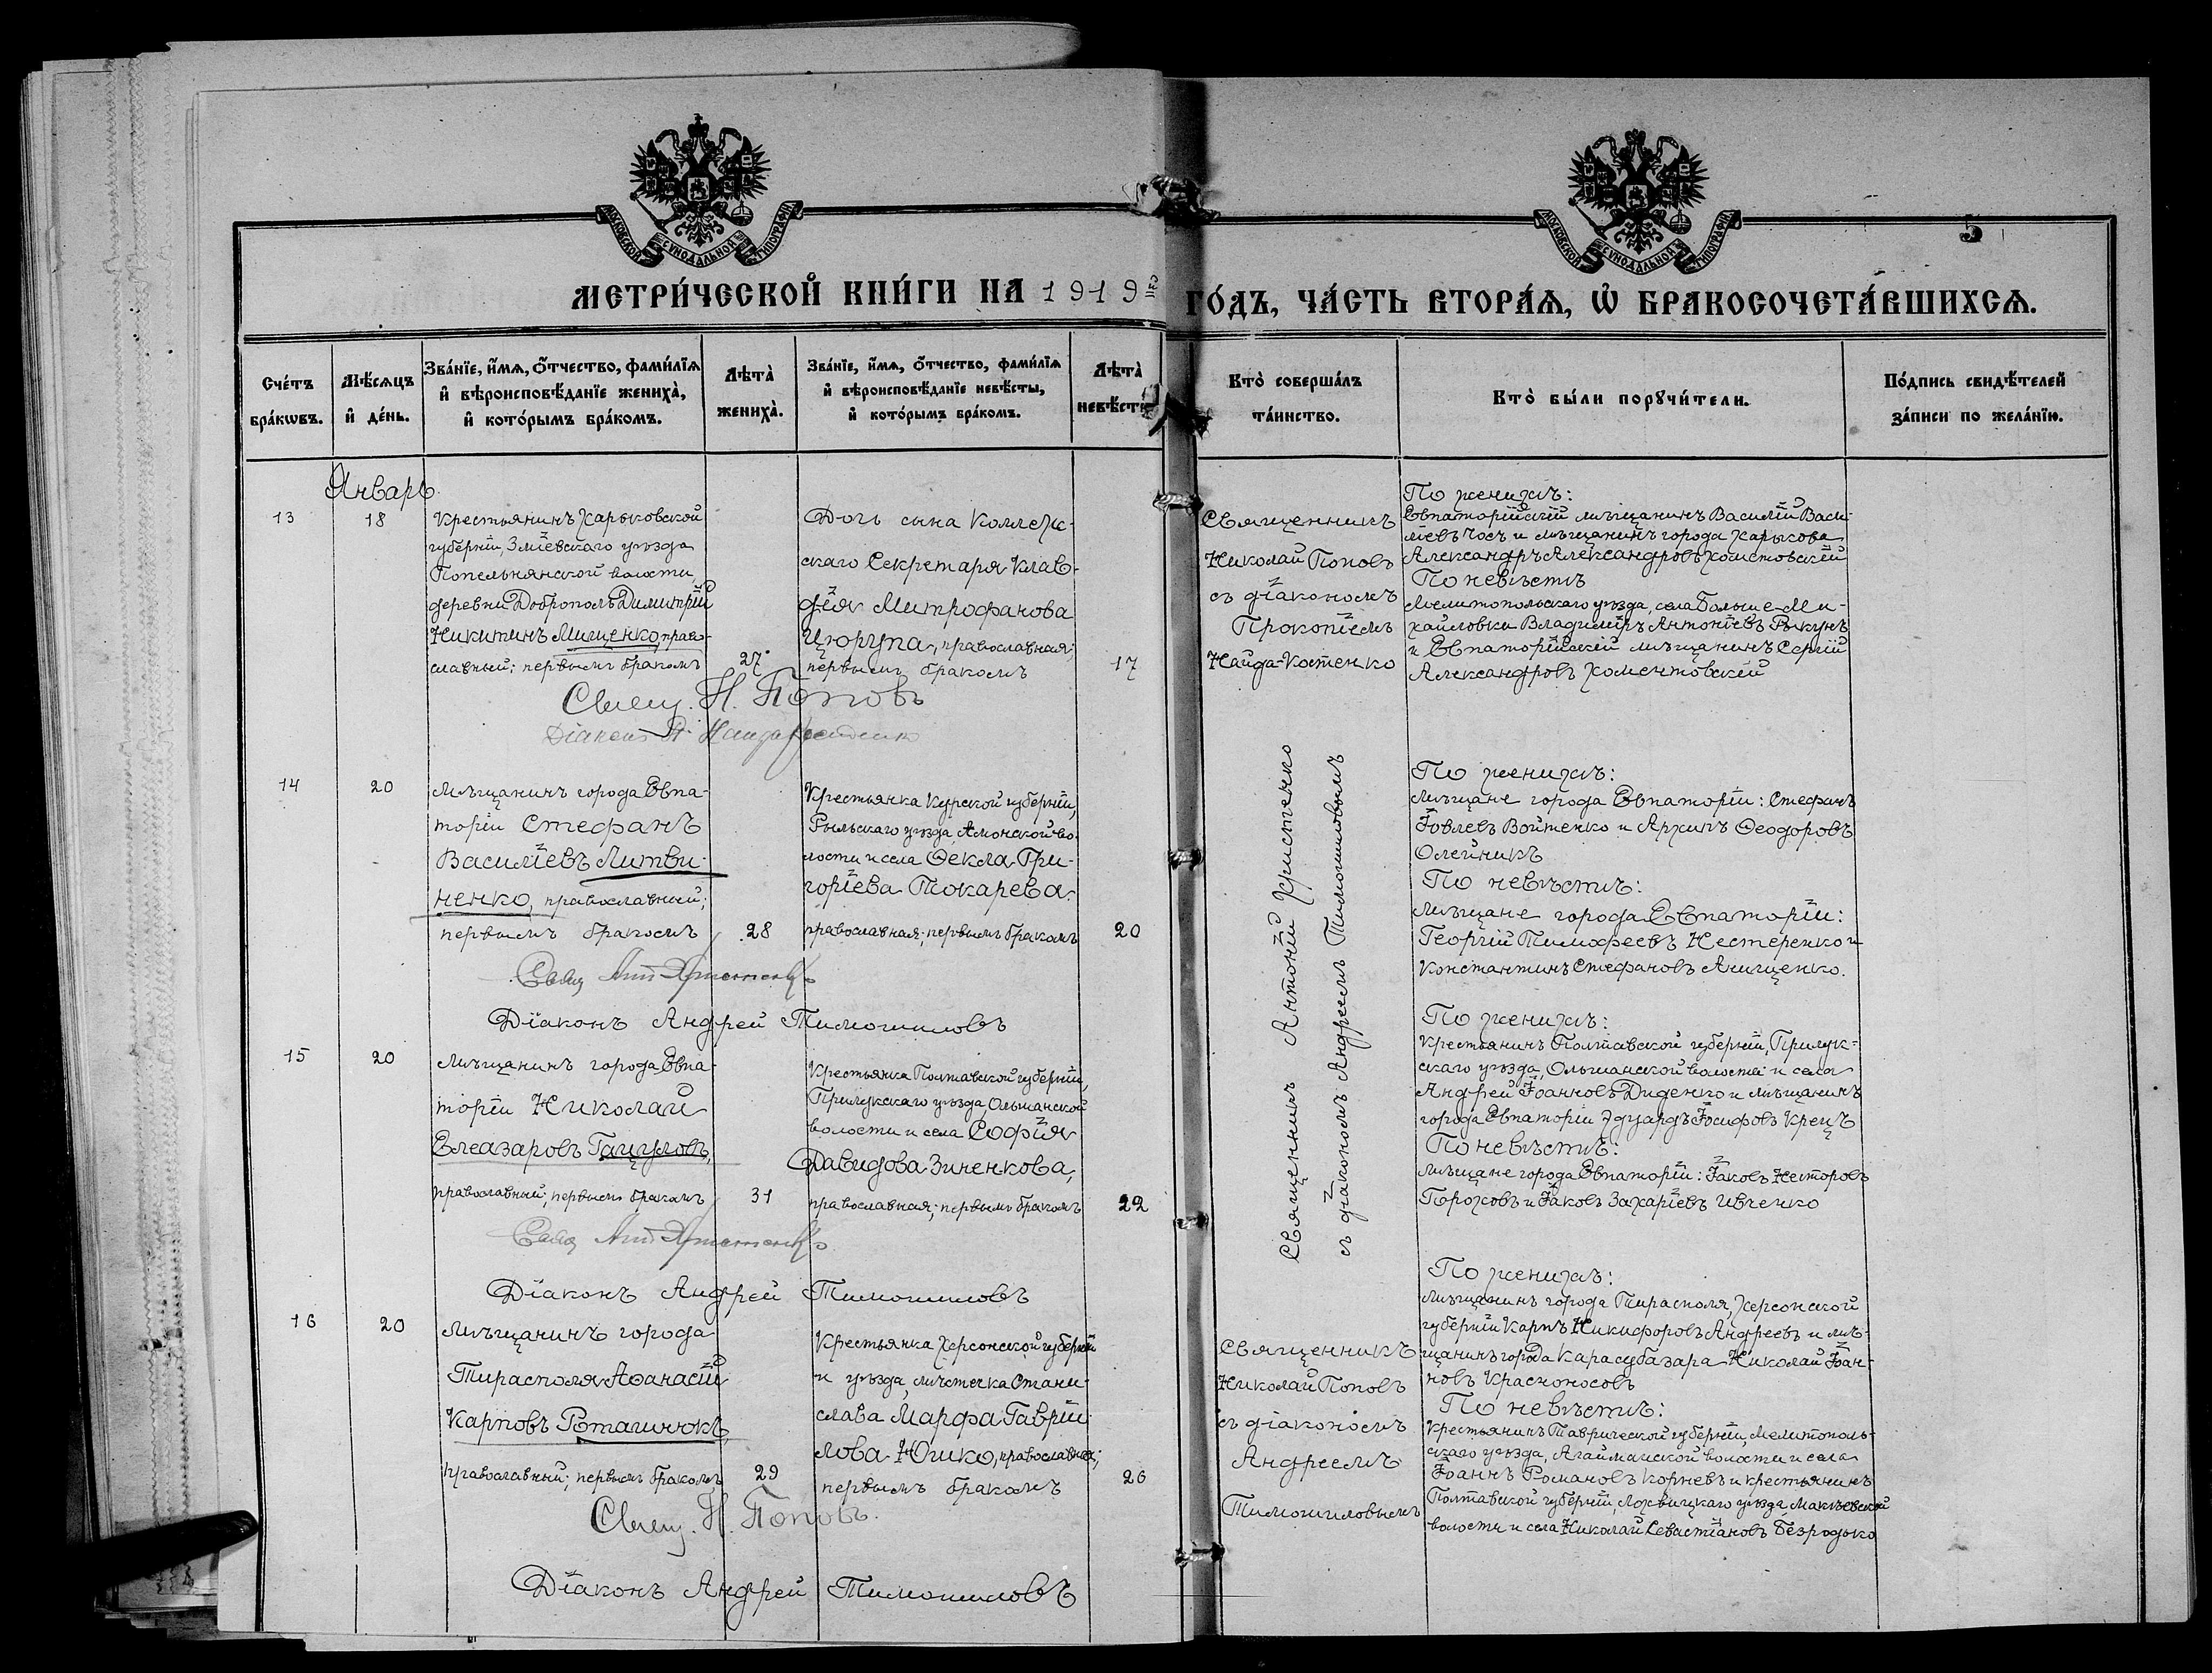 МОСКОВСКОЙ СѴНОДАЛЬНОЙ ТИПОГРАФІИ
МОСКОВСКОЙ СѴНОДАЛЬНОЙ ТИПОГРАФІИ
5
МЕТРИ́ЧЕСКОЙ КНИ́ГИ НА 1919 г ГО́ДЪ, ЧА́СТЬ ВТОРА́Ѧ, Ѡ҆ БРАКОСОЧЕТА́ВШИХСѦ.
Сче́тъ
бра́кѡвъ.
Мѣ́сѧцъ
и҆ де́нь.
Зва́нїе, и҆́мѧ, ѻ҆́тчество, фами́лїѧ
и҆ вѣроисповѣ́данїе жениха̀,
и҆ кото́рымъ бра́комъ.
Лѣта̀
жениха̀.
Зва́нїе, и҆́мѧ, ѻ҆́тчество, фами́лїѧ
и҆ вѣроисповѣ́данїе невѣ́сты,
и҆ кото́рымъ бра́комъ.
Лѣта̀
невѣ́сты
Кто̀ соверша́лъ
та́инство.
Кто̀ бы́ли порꙋчи́тели.
По́дпись свидѣ́телей
за́писи по жела́нїю.
Январь
13
18
Крестьянинъ Харьковской
губерніи, Зміевскаго уѣзда
Попельнянской волости,
деревни Доброполь Димитрій
Никитинъ Мищенко, право-
славный; первымъ бракомъ
27
Дочь сына Коллеж-
скаго Секретаря Клав-
дія Митрофанова
Цюрупа, православная;
первымъ бракомъ
17
Священникъ
Николай Поповъ
съ діакономъ
Прокопіемъ
Найда-Костенко
По женихѣ:
Евпаторійскій мѣщанинъ Василій Васи-
ліевъ Чосъ и мѣщанинъ города Харькова
Александръ Александровъ Хоментовскій
По невѣстѣ
Мелитопольскаго уѣзда, села Больше-Ми-
хайловки Владиміръ Антоніевъ Рыкунъ
и Евпаторійскій мѣщанинъ Сергій
Александровъ Хоментовскій
Свящ. Н. Поповъ
Діаконъ П. Найда-Костенко
14
20
Мѣщанинъ города Евпа-
торіи Стефанъ
Василіевъ Литви-
ненко, православный;
первымъ бракомъ
28
Крестьянка Курской губерніи,
Рыльскаго уѣзда, Амонской во-
лости и села Ѳекла Гри-
горіева Токарева.
православная; первымъ бракомъ
20
Священникъ Антоній Христенко
съ діакономъ Андреемъ Тимошиловымъ
По женихѣ:
мѣщане города Евпаторіи: Стефанъ
Іовлевъ Войтенко и Архипъ Ѳеодоровъ
Олейникъ
По невѣстѣ:
мѣщане города Евпаторіи:
Георгій Тимоѳеевъ Нестеренко и
Константинъ Стефановъ Анищенко.
Свящ. Ант. Христенко
Діаконъ Андрей Тимошиловъ
15
20
Мѣщанинъ города Евпа-
торіи Николай
Елеазаровъ Гацуловъ,
православный; первымъ бракомъ
31
Крестьянка Полтавской губерніи,
Прилукскаго уѣзда, Ольшанской
волости и села Софія
Давидова Зиненкова,
православная; первымъ бракомъ
22
По женихѣ:
Крестьянинъ Полтавской губерніи, Прилук-
скаго уѣзда, Ольшанской волости и села
Андрей Іоанновъ Диденко и мѣщанинъ
города Евпаторіи Эдуардъ Іосифовъ Крецъ
По невѣстѣ:
мѣщане города Евпаторіи: Іаковъ Несторовъ
Пороховъ и Іаковъ Захаріевъ Ивченко
Свящ. Ант. Христенко
Діаконъ Андрей Тимошиловъ
16
20
Мѣщанинъ города
Тирасполя Аѳанасій
Карповъ Рыташнюкъ
православный; первымъ бракомъ
29
Крестьянка Херсонской губерніи
и уѣзда, мѣстечка Стани-
слава Марфа Гавріи-
лова Юшко, православная;
первымъ бракомъ
26
Священникъ
Николай Поповъ
съ діакономъ
Андреемъ
Тимошиловымъ
По женихѣ:
Мѣщанинъ города Тирасполя, Херсонской
губерніи Карпъ Никифоровъ Андреевъ и мѣ-
щанинъ города Карасубазара Николай Іоан-
новъ Красноносовъ
По невѣстѣ:
Крестьянинъ Таврической губерніи, Мелитополь-
скаго уѣзда, Агайманской волости и села
Іоаннъ Романовъ Корневъ и крестьянинъ
Полтавской губерніи, Лохвицкаго уѣзда, Макѣевской
волости и села Николай Севастіановъ Безродько
Свящ. Н. Поповъ.
Діаконъ Андрей Тимошиловъ